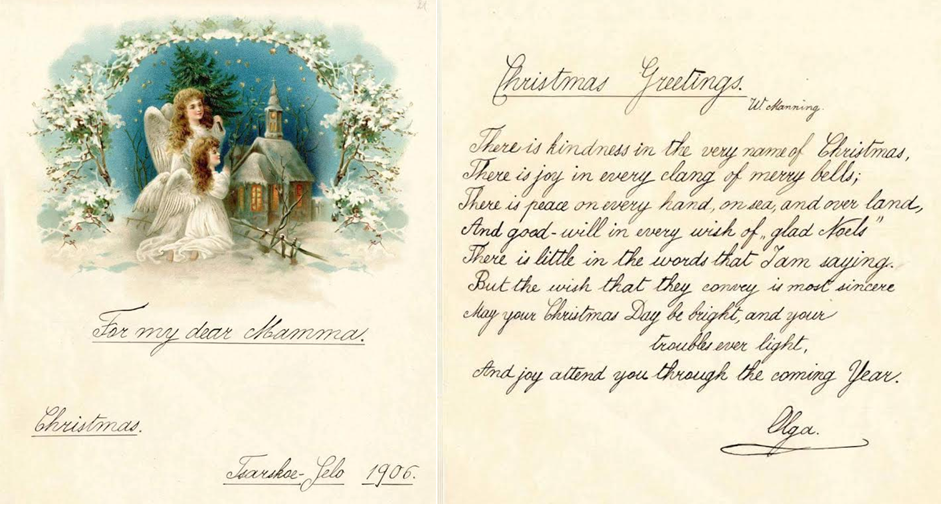 For my dear Mamma.
Christmas.
Tsarskoe-Selo 1906.
Christmas Greetings.
W. Manning.
There is kindness in the very name of Christmas,
There is joy in every clang of merry bells;
There is peace on every hand, on sea, and over land,
And good-will in every wish of „glad Noels"
There is little in the words that I am saying.
But the wish that they convey is most sincere
May your Christmas Day be bright, and your
troubles ever light,
And joy attend you through the coming Year.
Olga.